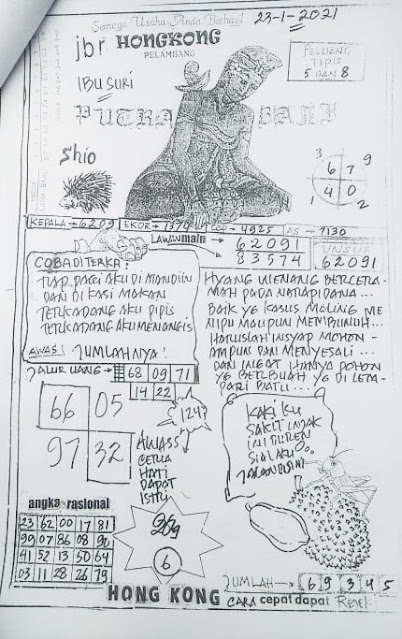 Semoga Usaha Anda Berhasil
23-1-2021
jbr HONGKONG
PELAMBANG
PELUANG
TIPIS
5 DAN 8
IBU SURI
PUTRA BALI
Shio
3 6 7 9
1 4 0 2
KEPALA → 6209 EKOR → 7374 4925 AS → 7130
LAWAN main
62091
83574
62091
COBA DITERKA:
TIAP PAGI AKU DI MANDIIN
DAN DI KASI MAKAN
TERKADANG AKU PIPIS
TERKADANG AKU MENANGIS
AWAS! JUMLAHNYA!
HYANG WENANG BERCERA-
MAH PADA NARAPIDANA...
BAIK YG KASUS MALING ME
NIPU MAUPUN MEMBUNUH...
HARUSLAH INSYAP MOHON -
AMPUN DAN MENYESALI...
DAN INGAT HANYA POHON
YG BERBUAH YG DI LEMPA-
DARI BATU...
JALUR UANG → 68 09 71
14 22
66 05
97 32
1247
AWASS
CERIA
HATI
DAPAT
ISTRI
KAKI KU
SAKIT INJAK
INI DUREN
SIALAKU
angka rasional
23 62 00 17 81
99 07 86 08 90
41 52 13 50 64
03 11 28 26 79
289
6
JUMLAH → 6 9 3 4 5
HONG KONG CARA cepat dapat